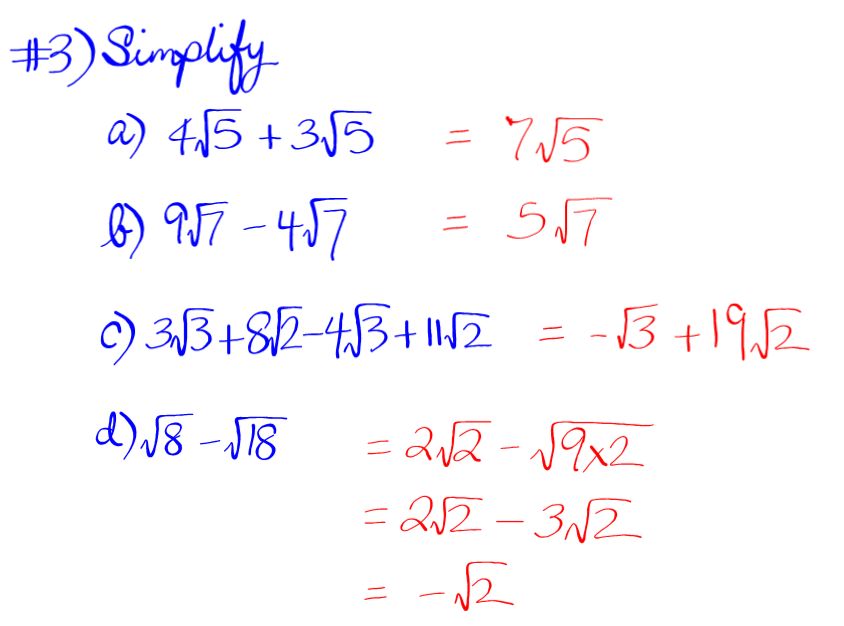 #3) Simplify
a) 4√5 + 3√5 = 7√5
b) 9√7 - 4√7 = 5√7
c) 3√3 + 8√2 - 4√3 + 11√2 = -√3 + 19√2
d) √8 - √18 = 2√2 - √9x2
= 2√2 - 3√2
= -√2